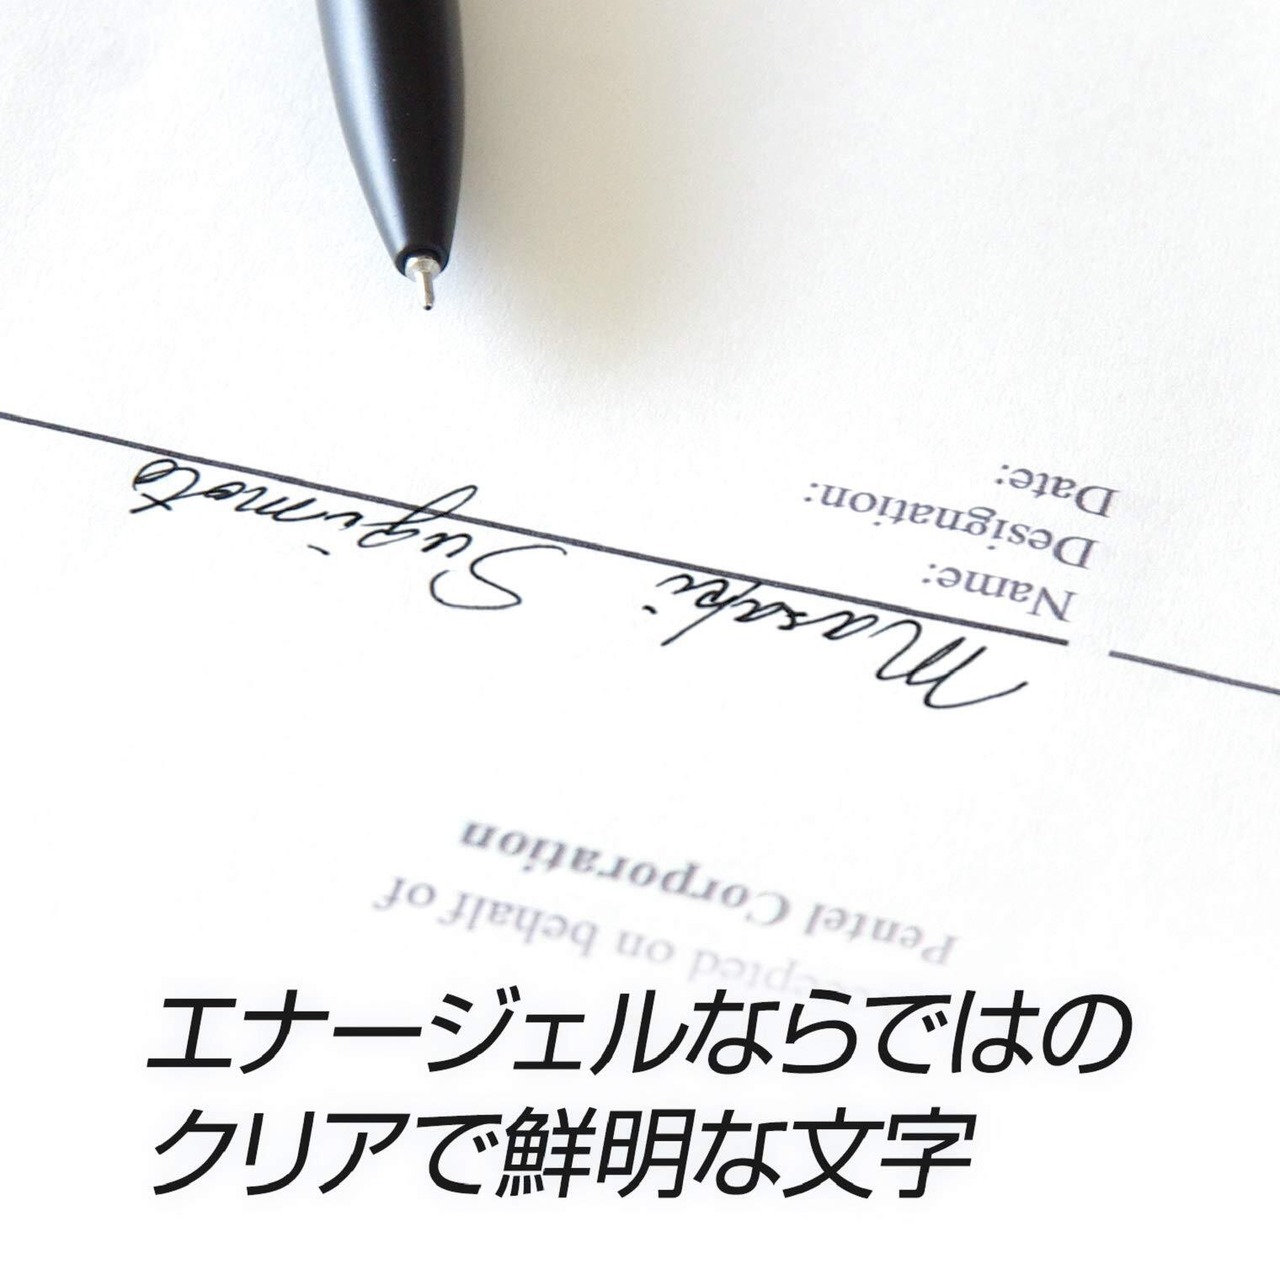 エナージェルならではの
クリアで鮮明な文字
on behalf of
Pentel Corporation
Masaki Sugimoto
Name:
Designation:
Date: